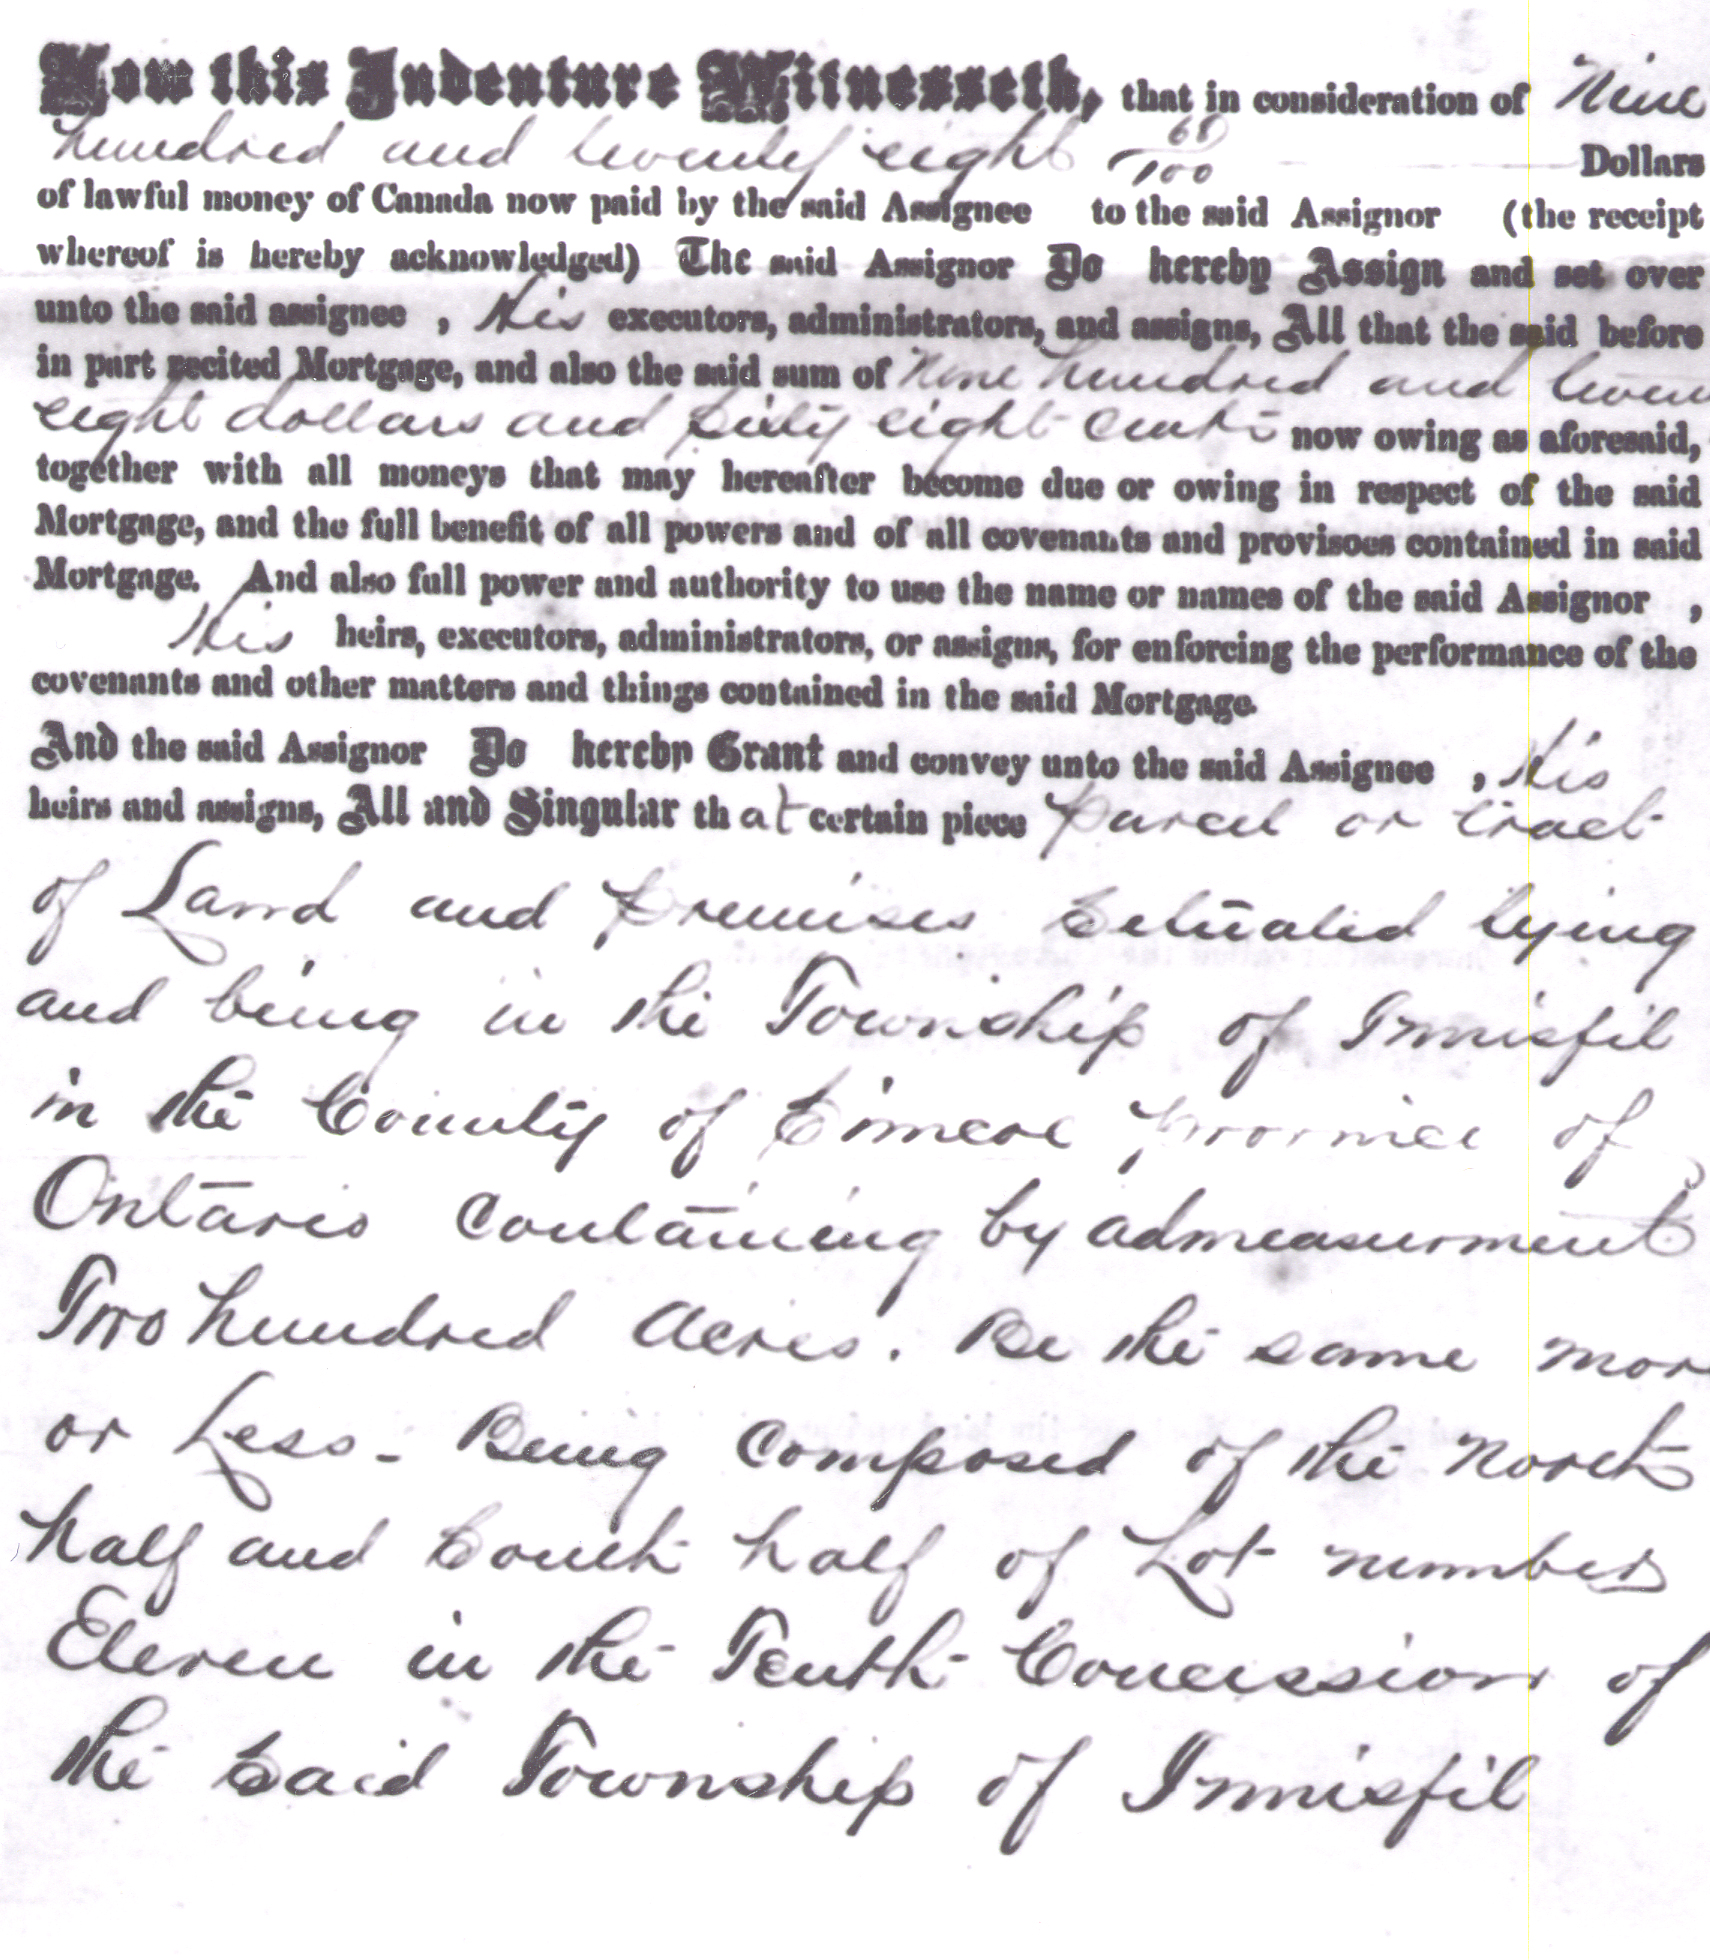 Now this Indenture Witnesseth, that in consideration of Nine
hundred and twenty eight 68/100 Dollars
of lawful money of Canada now paid by the said Assignee to the said Assignor (the receipt
whereof is hereby acknowledged) The said Assignor Do hereby Assign and set over
unto the said assignee , His executors, administrators, and assigns, All that the said before
in part recited Mortgage, and also the said sum of Nine hundred and twen
eight dollars and sixty eight cents now owing as aforesaid,
together with all moneys that may hereafter become due or owing in respect of the said
Mortgage, and the full benefit of all powers and of all covenants and provisoes contained in said
Mortgage. And also full power and authority to use the name or names of the said Assignor ,
His heirs, executors, administrators, or assigns, for enforcing the performance of the
covenants and other matters and things contained in the said Mortgage.
And the said Assignor Do hereby Grant and convey unto the said Assignee , His
heirs and assigns, All and Singular that certain piece parcel or tract
of Land and premises Situated lying
and being in the Township of Innisfil
in the County of Simcoe province of
Ontario Containing by admeasurment
Two hundred Acres. Be the same mor
or Less - Being Composed of the North
half and South half of Lot number
Eleven in the Tenth Concession of
the Said Township of Innisfil